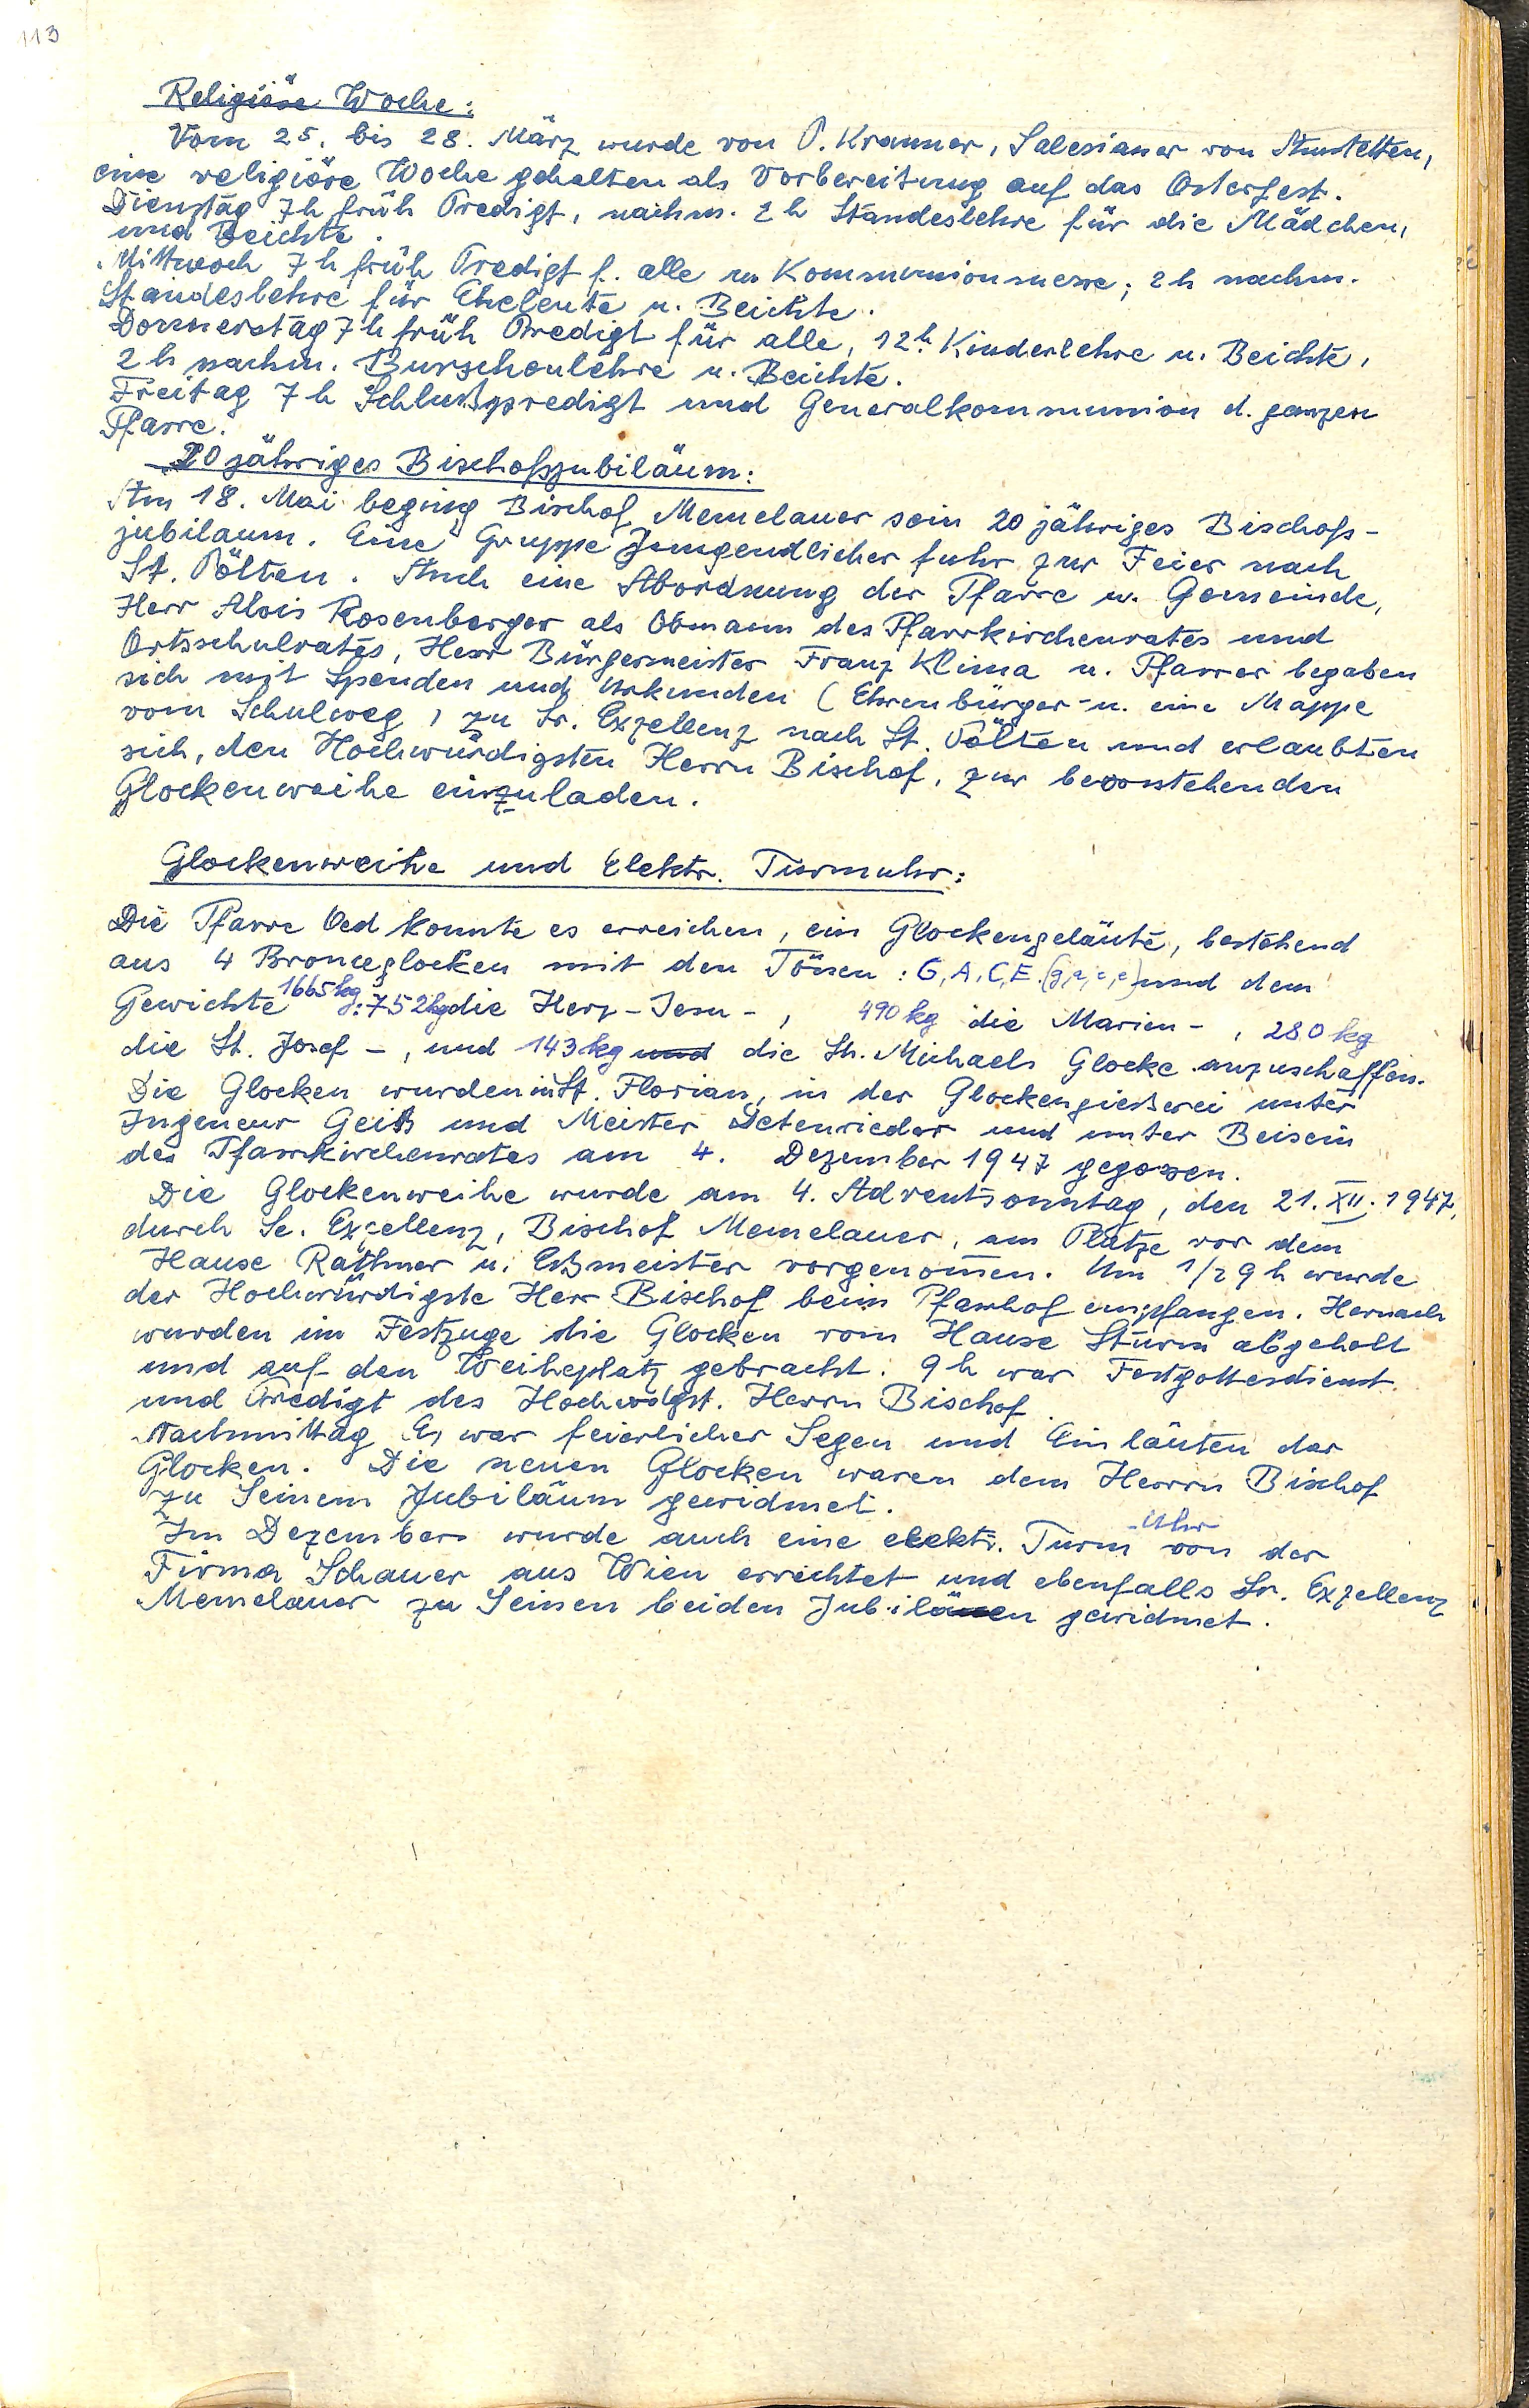 113
Religiöse Woche:
Vom 25. bis 28. März wurde von P. Kranner, Salesianer von Amstetten,
eine religiöse Woche gehalten als Vorbereitung auf das Osterfest.
Dienstag 7h früh Predigt, nachm. 2 h Standeslehre für die Mädchen,
und Beichte.
Mittwoch 7 h früh Predigt f. alle u. Kommunionmesse; 2 h nachm.
Standeslehre für Eheleute u. Beichte.
Donnerstag 7 h früh Predigt für alle, 12h. Kinderlehre u. Beichte,
2 h nachm. Burschenlehre u. Beichte.
Freitag 7 h Schlußpredigt und Generalkommunion d. ganzen
Pfarre.
20 jähriges Bischofsjubiläum:
Am 18. Mai beging Bischof Memelauer sein 20 jähriges Bischofs-
jubilaum. Eine Gruppe Jungendlicher fuhr zur Feier nach
St. Pölten. Auch eine Abordnung der Pfarre u. Gemeinde,
Herr Alois Rosenberger als Obmann des Pfarrkirchenrates und
Ortsschulrates, Herr Bürgermeister Franz Klima u. Pfarrer begaben
sich mit Spenden und Urkunden (Ehrenbürger- u. eine Mappe
vom Schulweg) zu Sr. Exzellenz nach St. Pölten und erlaubten
sich, den Hochwürdigsten Herrn Bischof, zur bevorstehenden
Glockenweihe einzuladen.
Glockenweihe und Elektr. Turmuhr:
Die Pfarre Oed konnte es erreichen, ein Glockengeläute, bestehend
aus 4 Bronceglocken mit den Tönen: G, A, C, E. und dem
Gewichte 1665 kg: 752kg die Herz-Jesu-, 490 kg die Marien-, 280 kg
die St. Josef-, und 143 kg und die St. Michaels Glocke anzuschaffen.
Die Glocken wurden in St. Florian, in der Glockengießerei unter
Ingeneur Geiß und Meister Detenrieder und unter Beisein
des Pfarrkirchenrates am 4. Dezember 1947 gegossen.
Die Glockenweihe wurde am 4. Adventsonntag, den 21. XII. 1947,
durch Se. Exzellenz, Bischof Memelauer, am Platze vor dem
Hause Rathner u. Eßmeister vorgenommen. Um 1/2 9 h wurde
der Hochwürdigste Herr Bischof beim Pfarrhof empfangen. Hernach
wurden im Festzuge die Glocken vom Hause Sturm abgeholt
und auf den Weiheplatz gebracht. 9 h war Festgottesdienst
und Predigt des Hochwdgst. Herrn Bischof
Nachmittag war feierlicher Segen und Einläuten der
Glocken. Die neuen Glocken waren dem Herrn Bischof
zu Seinem Jubiläum gewidmet.
Im Dezember wurde auch eine elektr. Turm-Uhr von der
Firma Schauer aus Wien errichtet und ebenfalls Sr. Exzellenz
Memelauer zu Seinen beiden Jubiläen gewidmet.